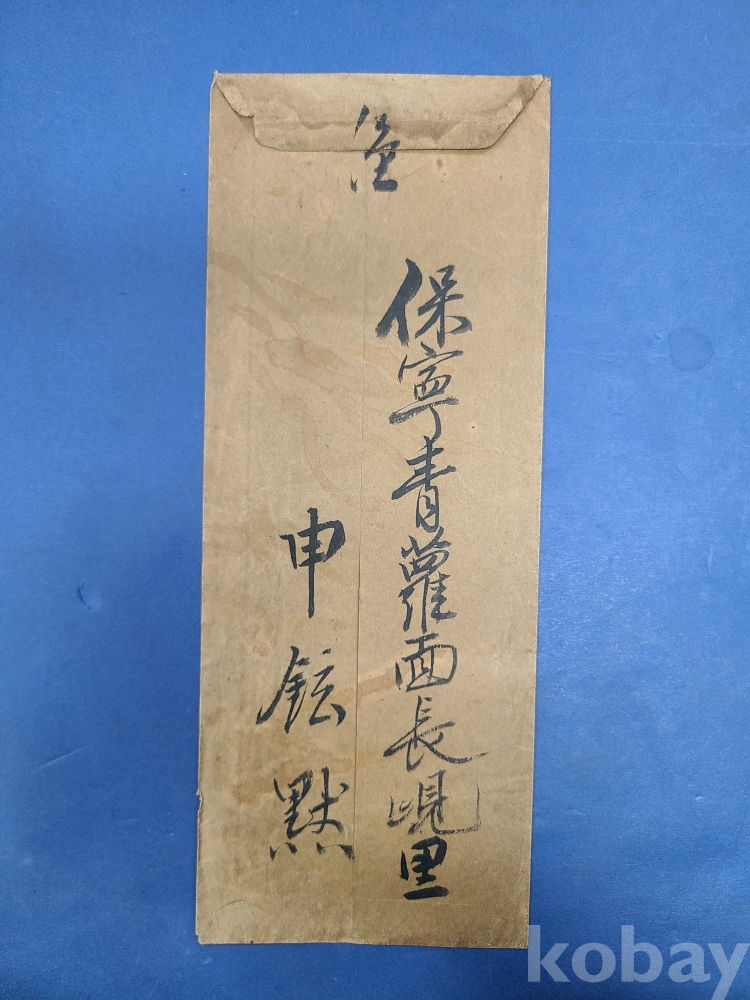 保寧青蘿面長峴里
申鉉默
kobay